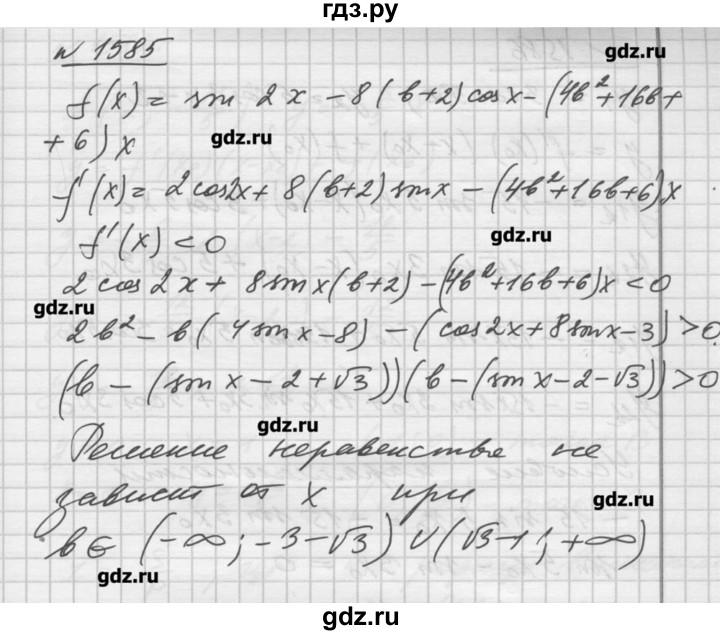 гдз.ру
№ 1585
gdz.ru
f(x) = sin 2x - 8(b+2)cosx - (4b²+16b+
+6)x
gdz.ru
f'(x) = 2cos2x + 8(b+2)sinx - (4b²+16b+6)x
f'(x) < 0
gdz.ru
2cos2x + 8sinx(b+2) - (4b²+16b+6)x < 0
gdz.ru
2b² - b(4sinx-8) - (cos2x+8sinx-3) > 0
(b - (sinx - 2 + √3))(b - (sinx - 2 - √3)) > 0
gdz.ru
Решение неравенства не
зависит от x при
gdz.ru
b ∈ (-∞; -3-√3) ∪ (√3-1; +∞)
gdz.ru
gdz.ru